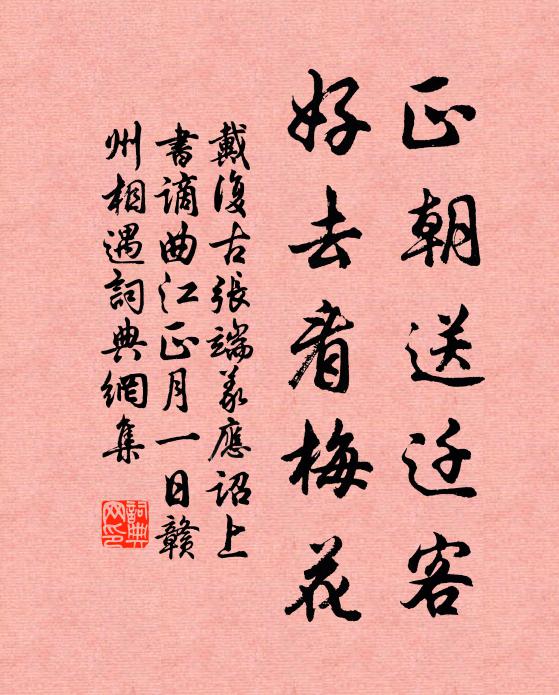 正朝送迁客
好去看梅花
戴復古張端義應詔上
書謫曲江正月一日贛
州相遇詞典網集
詞典
网印